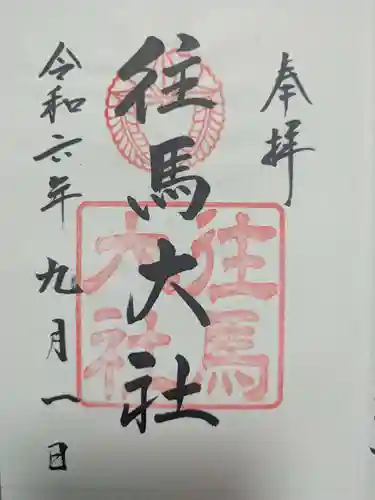 奉拝
往馬大社
往馬
大社
令和六年九月一日